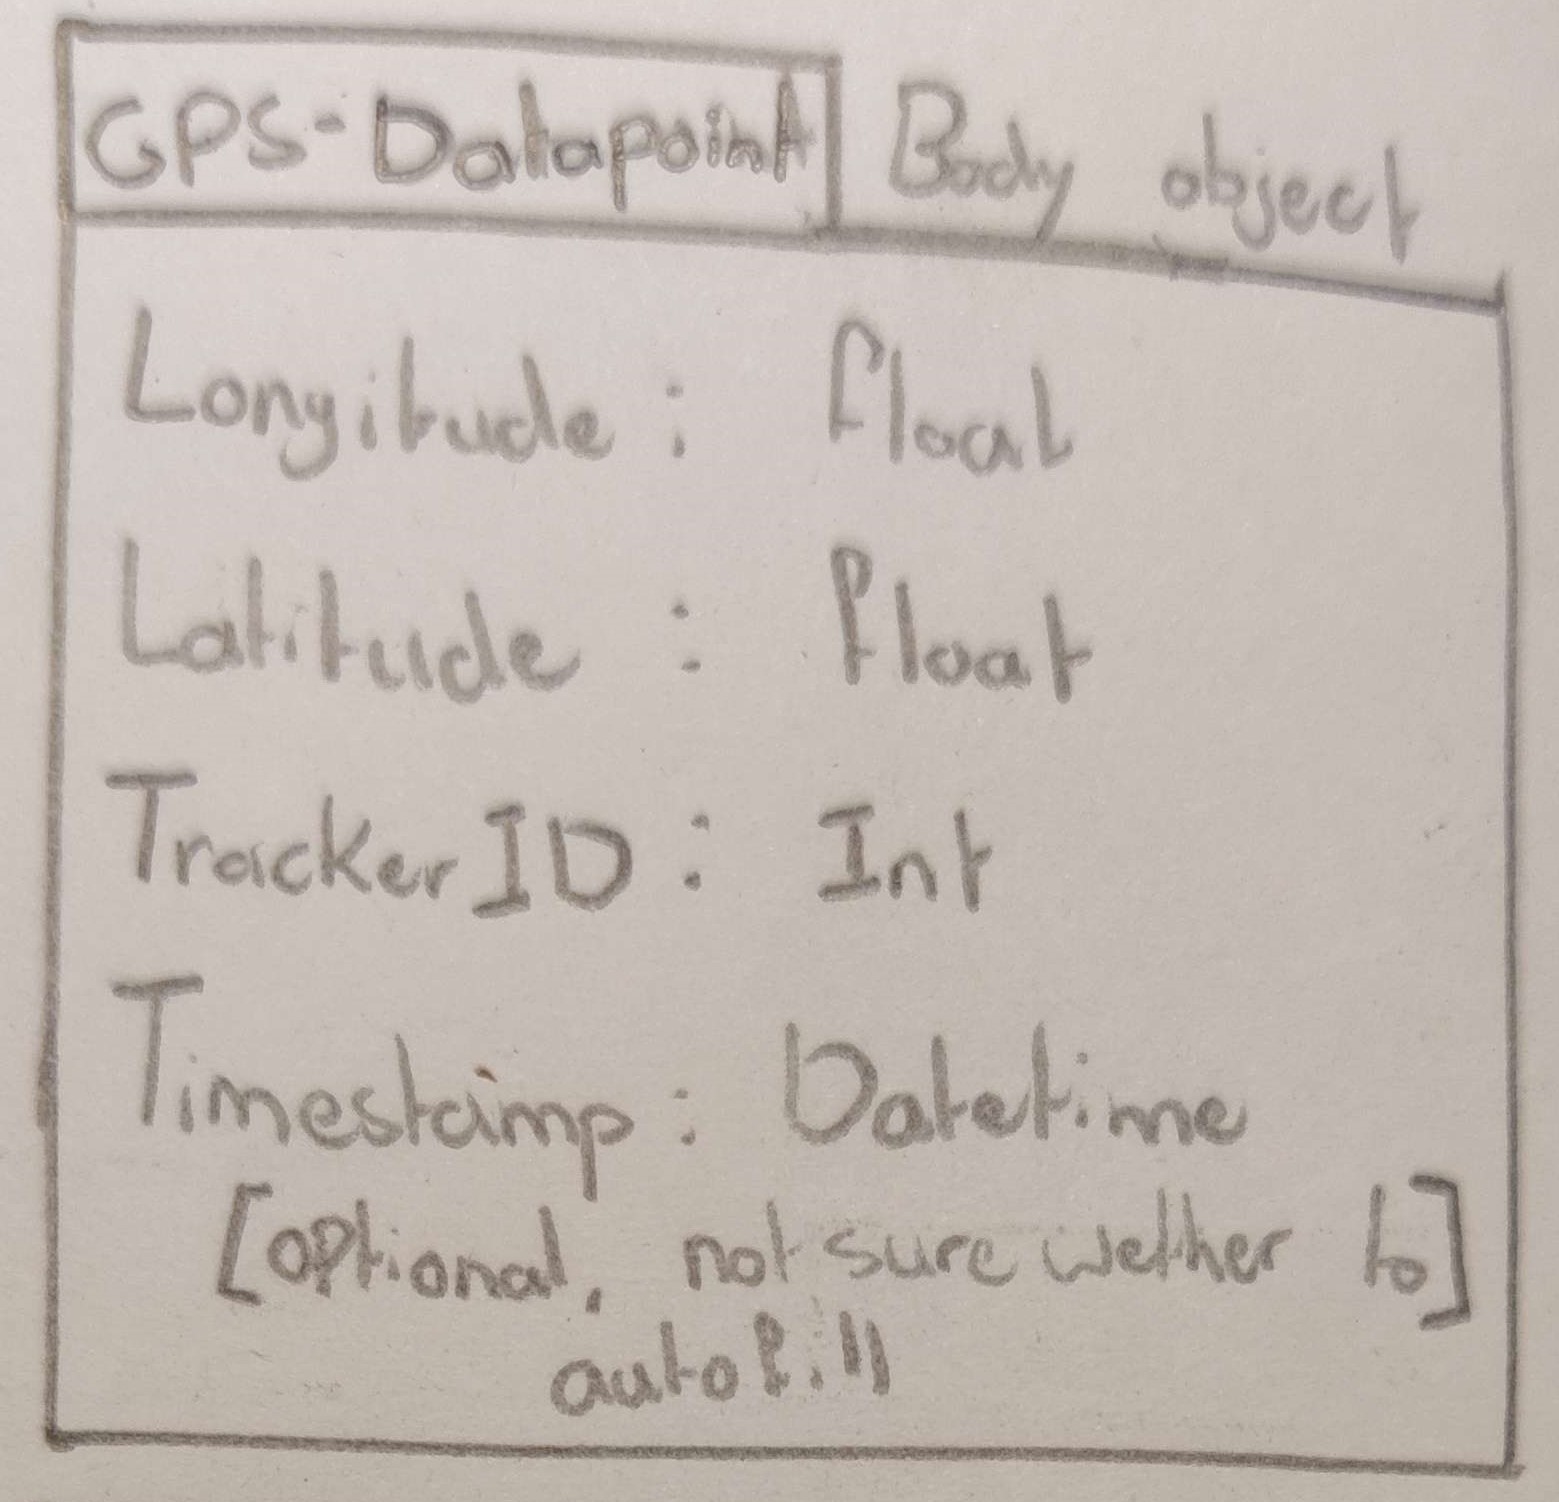 GPS-Datapoint Body object
Longitude: float
Latitude : float
TrackerID: Int
Timestamp: Datetime
[optional, not sure wether to]
autofill